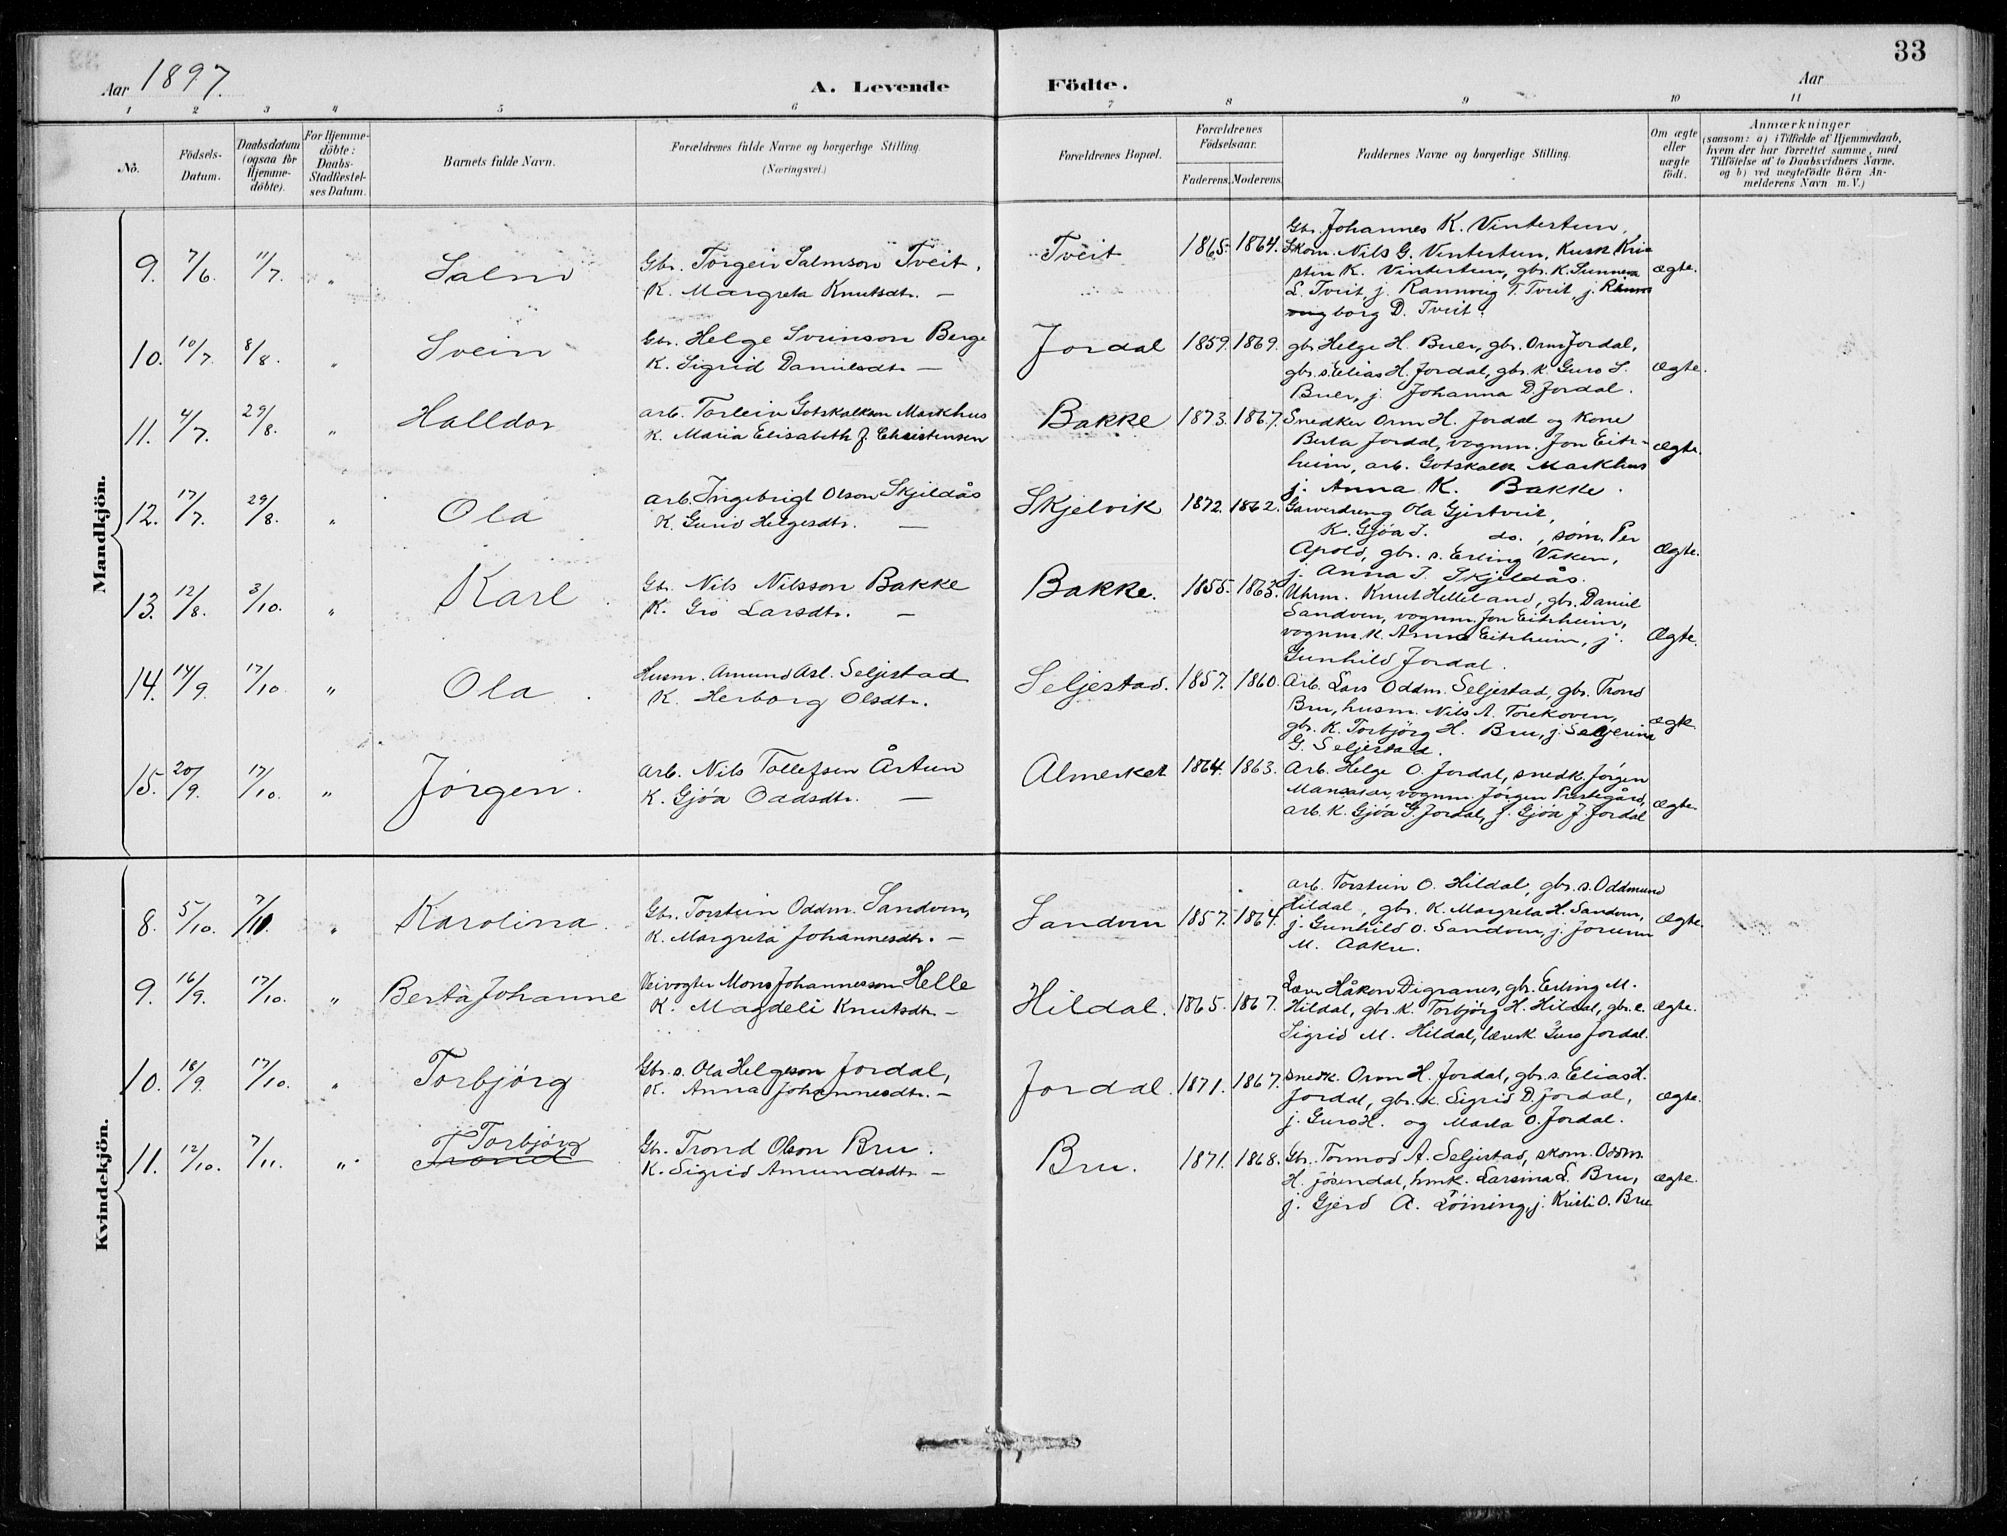 33
Aar 1897.
A. Levende Födte.
Aar
1 2 3 4 5 6 7 8 9 10 11
No.
Födsels-Datum.
Daabsdatum (ogsaa for Hjemme-döbte).
For Hjemme-döbte: Daabs-Stadfæstel-ses Datum.
Barnets fulde Navn.
Forældrenes fulde Navne og borgerlige Stilling. (Næringsvei.)
Forældrenes Bopæl.
Forældrenes Födselsaar.
Faderens. Moderens.
Faddernes Navne og borgerlige Stilling.
Om ægte eller uægte födt.
Anmærkninger
(saasom: a) i Tilfælde af Hjemmedaab,
hvem der har forrettet samme, med
Tilföielse af to Daabsvidners Navne.
og b) ved uægtefödte Börn An-
melderens Navn m. V.)
Mandkjön.
9. 7/6. 11/7. " Salm Gbr. Torgeir Salmson Tveit, Tveit 1865. 1864. Gbr. Johannes K. Vintertun,
K. Margreta Knutsdtr. — Skom. Nils G. Vintertun, Kusk Kri-
stin K. Vintertun, gbr. K. Sunniva ægte.
L. Tveit j. Rannveig T. Tveit, j.
borg D. Tveit.
10. 10/7. 8/8. " Svein Gbr. Helge Sveinson Berge Jordal 1859. 1869. gbr Helge H. Buer, gbr. Orm Jordal,
K. Sigrid Danielsdtr. — gbr. s. Elias H. Jordal, gbr. K. Guro S. ægte.
Buer, j. Johanna D. Jordal.
11. 4/7. 29/8. " Halldor arb. Torleiv Gotskalksen Markhus Bakke 1873. 1867. Snedker Orm H. Jordal og Kone
K. Maria Elisabeth f. Christensen Berta Jordal, vognm. Jon Eitr- ægte.
heim, arb. Gotskalk Markhus
j. Anna K. Bakke.
12. 17/7. 29/8. " Ola arb. Ingebrigt Olson Skjeldås Skjelvik 1872. 1862. Garverdreng Ola Gjertveit,
K. Guro Helgesdtr. — K. Gjøa T. do., søm. Per
Apold, gbr. s. Erling Viken, ægte.
j. Anna I. Skjeldås.
13. 12/8. 3/10. " Karl Gbr. Nils Nilsson Bakke Bakke. 1855. 1863. Uhrm. Knut Helleland, gbr. Daniel
K. Gro Larsdtr. — Sandven, vognm. Jon Eitrheim,
vognm. K. Anna Eitrheim, j. ægte.
Gunhild Jordal.
14. 14/9. 17/10. " Ola Husm. Amund Asl. Seljestad Seljestad. 1857. 1860. Arb. Lars Oddm. Seljestad, gbr. Trond
K. Herborg Olsdtr. Bru, husm. Nils A. ægte
gbr. K. Torbjørg H. Bru, j. Severina
G. Seljestad.
15. 20/9. 17/10. " Jørgen. arb. Nils Tollefsen Årtun Almerket 1864. 1863. Arb. Helge O. Jordal, snedk. Jørgen
K. Gjøa Oddsdtr. — vognm. Jørgen Prestegård, ægte.
arb. K. Gjøa G. Jordal, j. Gjøa J. Jordal
Kvindekjön.
8. 5/10. 7/11. " Karolina. Gbr. Torstein Oddm. Sandven, Sandven 1857. 1864. arb. Torstein O. Hildal, gbr. s. Oddmund
K. Margreta Johannesdtr. — Hildal, gbr. K. Margreta H. Sandven, ægte.
j. Gunhild O. Sandven, j. Jorunn
M. Aakre.
9. 16/9. 17/10. " Berta Johanne Veivogter Mons Johannesson Helle Hildal. 1865. 1867. Lærer Håkon Digranes, gbr. Erling M.
K. Magdeli Knutsdtr. — Hildal, gbr. K. Torbjørg H. Hildal, gbr. e. ægte.
Sigrid M. Hildal, lærerk. Guro Jordal.
10. 18/9. 17/10. " Torbjørg Gbr. s. Ola Helgeson Jordal, Jordal. 1871. 1867. Snedk. Orm H. Jordal, gbr. s. Elias H.
K. Anna Johannesdtr. — Jordal, gbr. K. Sigrid D. Jordal, ægte.
j. Guro H. og Marta O. Jordal.
11. 12/10. 7/11. " Torbjørg Trond Gbr. Trond Olson Bru. Bru. 1871. 1868. Gbr. Tormod A. Seljestad, skom. Oddm.
K. Sigrid Amundsdtr. — H. Jøsendal, hmk. Larsina L. Bru, ægte.
j. Gjerd A. Löining, j. Kristi O. Bru